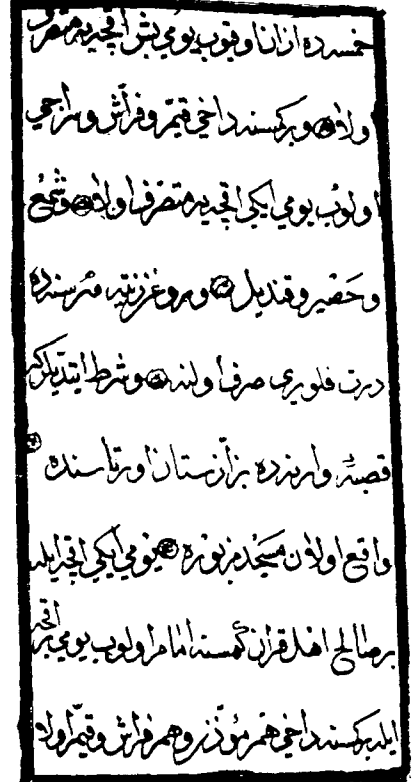 خمسه ده اذان اوقيوب يومي بش اقچيه متصرف
اولا و بر كمسنه داخي قيّم و فرّاش و سراجي
اولوب يومي ايكي اقچيه متصرف اولا و شمع
و حصير و قنديل و روغن زيته هر سنده
درت فلوري صرف اولنه و شرط ايتديلر كه
قصبهٔ واريده بزّازستان اورتاسنده
واقع اولان مسجد مزبوره يومي ايكي اقچه ايله
بر صالح اهل قران كمسنه امام اولوب يومي بر اقچه
ايله بر كمسنه داخي هم مؤذن و هم فرّاش و قيّم اولا